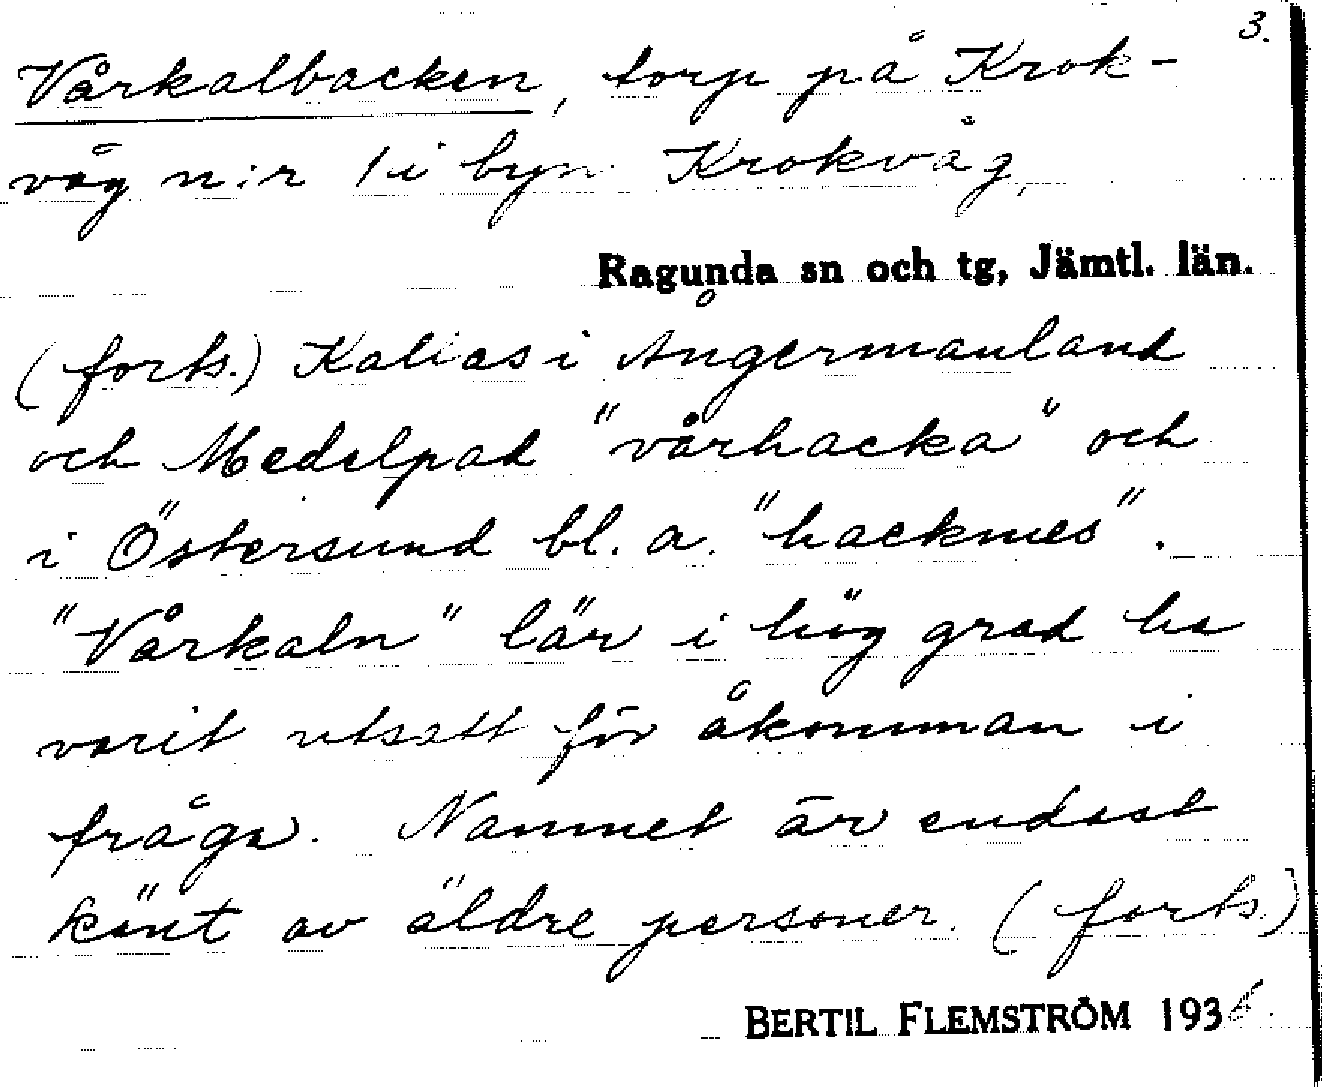 3.
Vårkalbacken, torp på Krok-
våg n:r 1 i byn Krokvåg,
Ragunda sn och tg, Jämtl. län.
(forts.) Kallas i Ångermanland
och Medelpad "vårhacka" och
i Östersund bl. a. "hacknees".
"Vårkaln" lär i hög grad ha
varit utsatt för åkomman i
fråga. Namnet är endast
känt av äldre personer. (forts.)
BERTIL FLEMSTRÖM 1936.